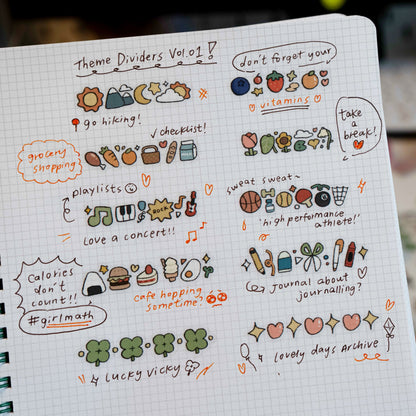 Theme Dividers Vol.01!
go hiking!
checklist!
grocery
shopping
playlists
ROCK
Love a concert!!
Calories
don't
count!!
#girlmath
cafe hopping
sometime?
Lucky Vicky
don't forget your
vitamins
take
a
break!
sweat sweat~
'high performance
athlete!'
Journal about
journalling?
lovely days Archive